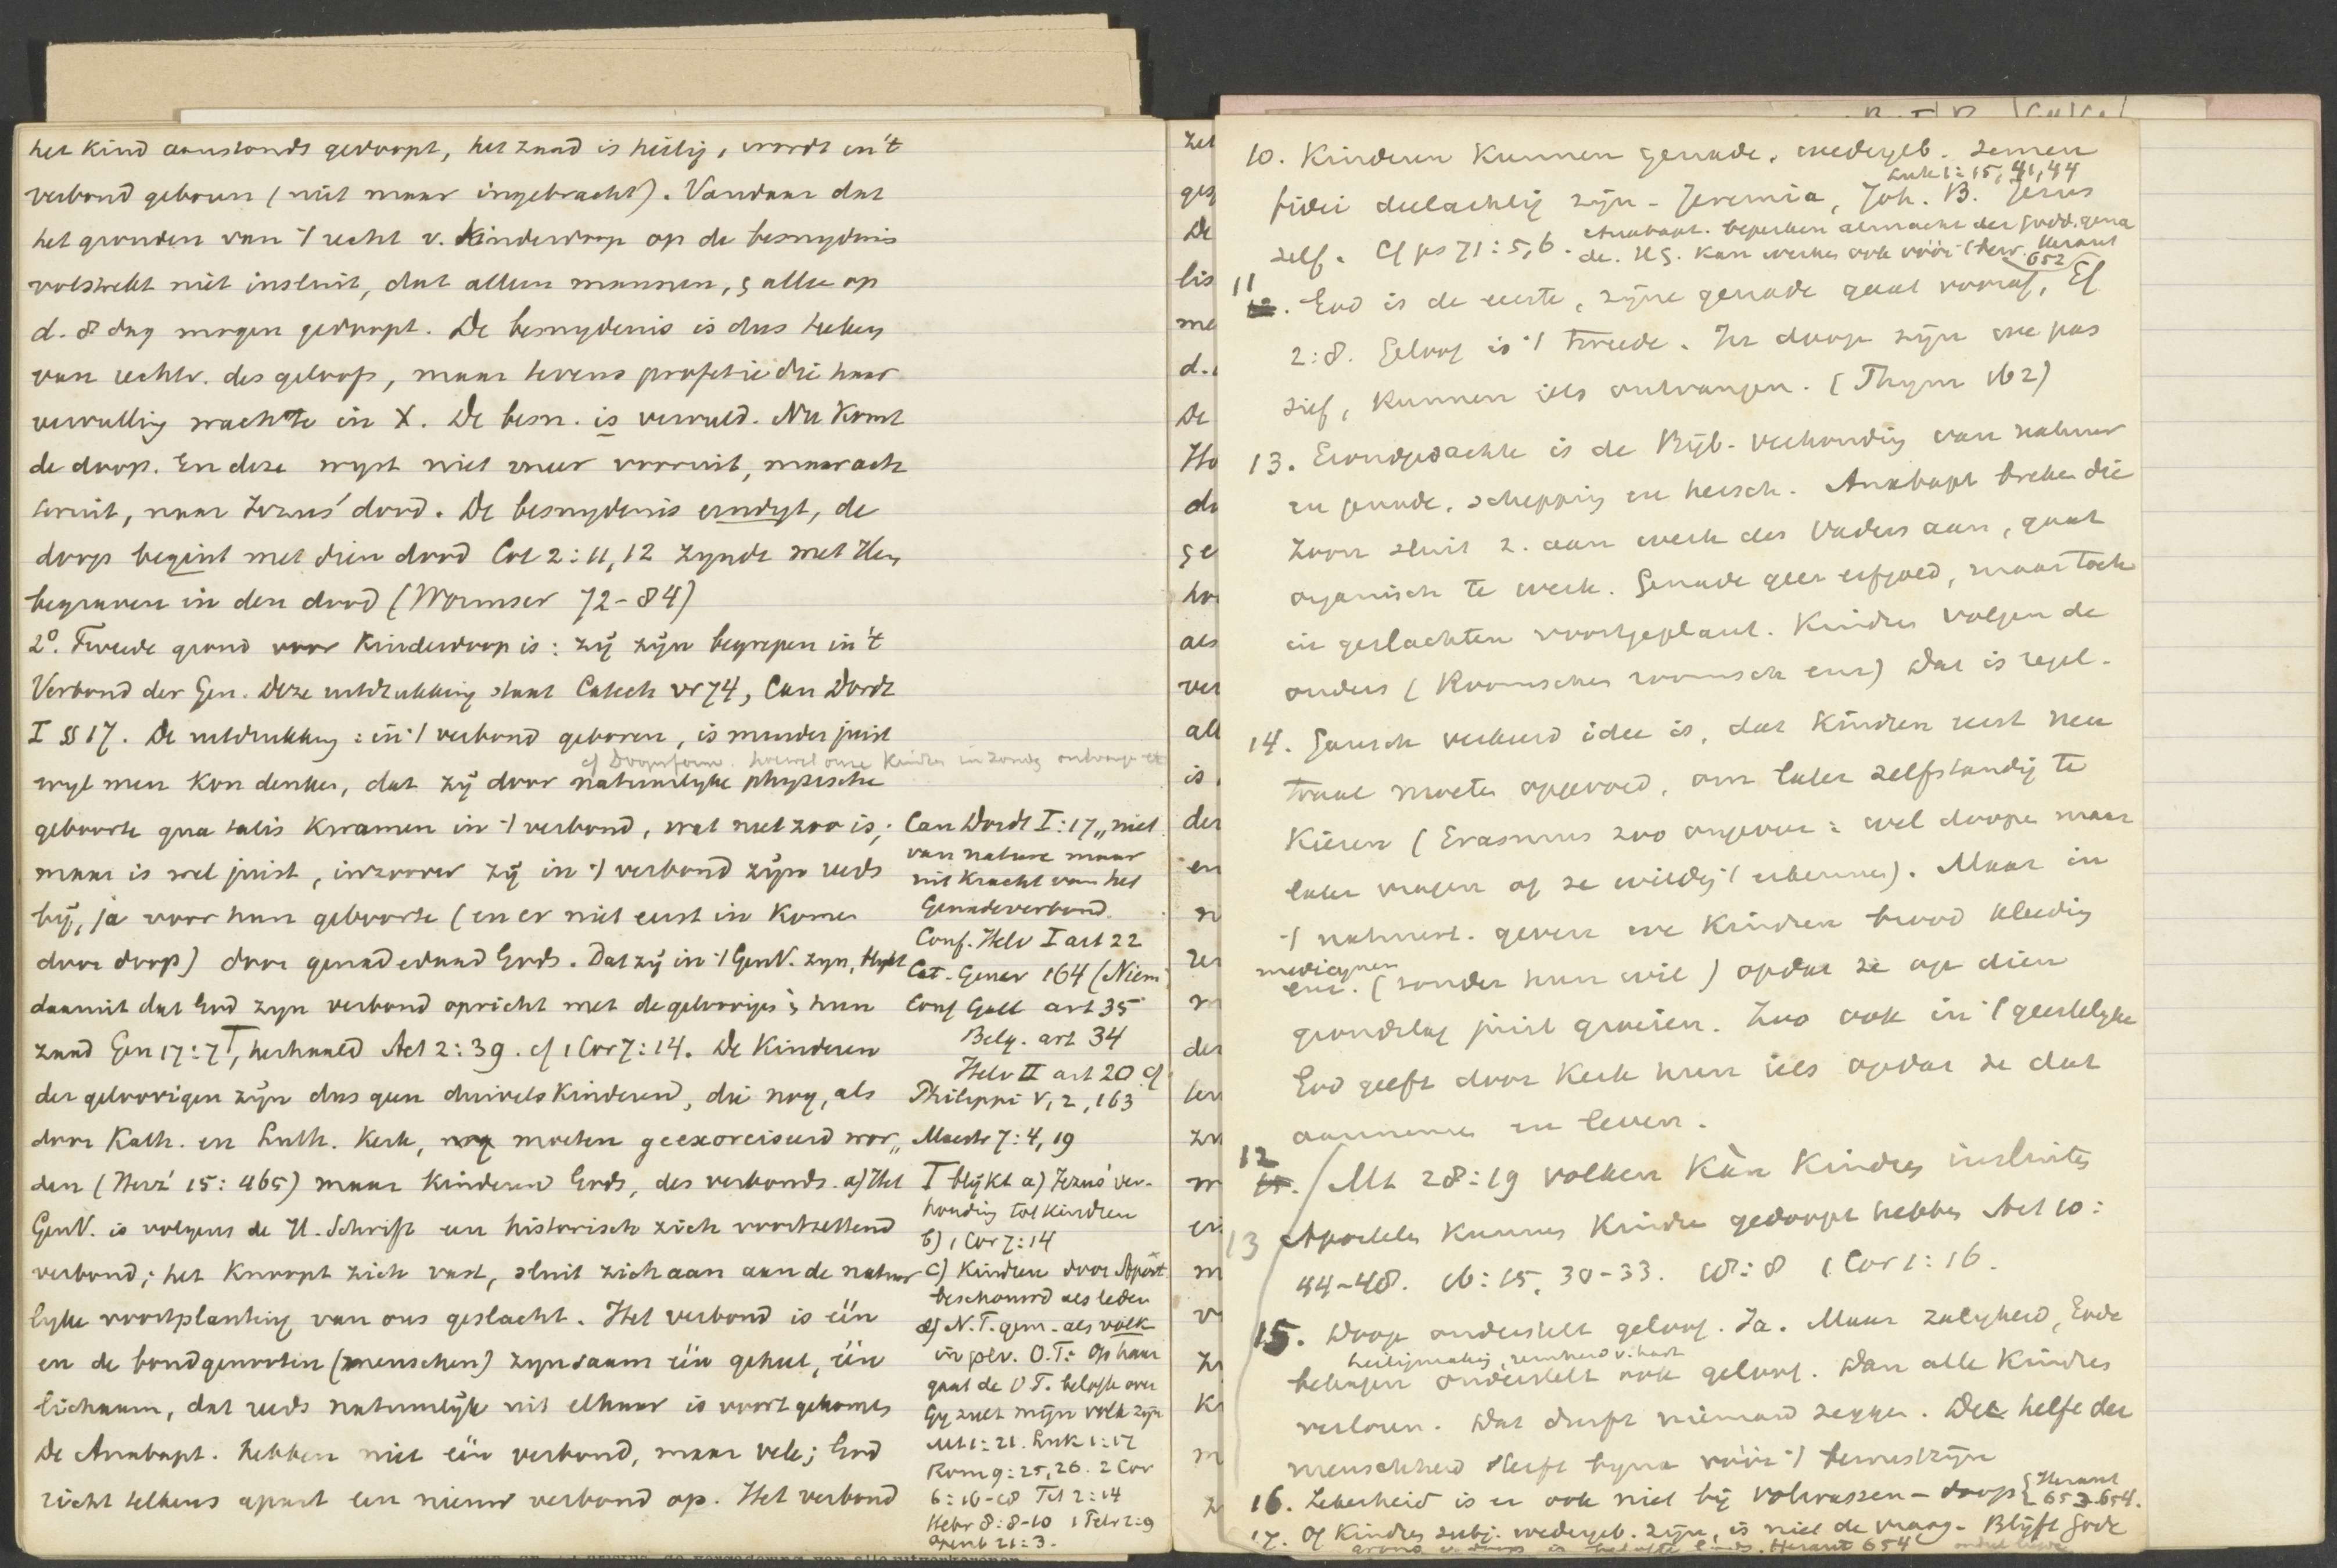 het kind aanstonds gedoopt, het zaad is heilig, wordt in 't
verbond geboren (niet maar ingebracht). Vandaar dat
het gronden van 't recht v. kinderdoop op de besnydenis
volstrekt niet insluit, dat alleen mannen, & alle op
d. 8 dag mogen gedoopt. De besnydenis is dus teeken
van rechtv. des geloofs, maar tevens profetie die haar
vervulling wachtte in X. De besn. is vervuld. Nu komt
de doop. En deze wyst niet meer vooruit, maar ach
teruit, naar Jezus' dood. De besnydenis eindigt, de
doop begint met dien dood Col 2:11,12 zynde met Hem
begraven in den dood (Wormser 72-84)
2°. Tweede grond voor Kinderdoop is: zij zijn begrepen in 't
Verbond der Gen. Deze uitdrukking staat Catech vr 74, Can Dordt
I § 17. De uitdrukking: in 't verbond geboren, is minder juist
cf Doopsform. hoewel onze kindren in zonde ontvangen
wyl men kon denken, dat zij door natuurlyke physische
geboorte qua talis kwamen in 't verbond, wat niet zoo is;
maar is wel juist, inzoover zij in 't verbond zijn reeds
bij, ja voor hun geboorte (en er niet eerst in komen
door doop) door genadedaad Gods. Dat zij in 't GenV. zyn, blykt
daaruit dat God zyn verbond opricht met de geloovigen & hun
zaad Gen 17:7 T, herhaald Act 2:39. cf 1 Cor 7:14. De Kinderen
der geloovigen zijn dus geen duivels Kinderen, die nog, als
door Kath. en Luth. Kerk, moeten geexorciseerd wor„
den (Herz' 15:465) maar Kinderen Gods, des verbonds. a) Het
GenV. is volgens de H. Schrift een historisch zich voortzettend
verbond; het knoopt zich vast, sluit zich aan aan de natuur
lyke voortplanting van ons geslacht. Het verbond is één
en de bondgenooten (menschen) zyn saam één geheel, één
lichaam, dat reeds natuurlijk uit elkaar is voortgekomen
De Anabapt. hebben niet één verbond, maar vele; God
richt telkens apart een nieuw verbond op. Het verbond
Can Dordt I:17 „niet
van nature maar
uit kracht van het
Genadeverbond.
Conf. Helv I art 22
Cat. Genev 164 (Niem
Conf Gall art 35
Belg. art 34
Helv II art 20 cf
Philippi V, 2, 163
Maestr 7:4, 19
T blijkt a) Jezus' ver-
houding tot kindren
b) 1 Cor 7:14
c) Kindren door Apost
beschouwd als leden
d) N.T. gem. als volk
in plv. O.T. Op haar
gaat de O T. belofte over
Gy zult mijn volk zijn
Mt 1:21. Luk 1:17
Rom 9:25,26. 2 Cor
6:16-18 Tit 2:14
Hebr 8:8-10 1 Petr 2:9
Openb 21:3.
10. Kinderen kunnen genade, wedergeb. semen
Luk 1:15, 41,44
fidei deelachtig zijn - Jeremia, Joh. B. Jezus
zelf. Cf ps 71:5,6. Anabapt. beperken almacht der godd. gena
de. HG. kan werken ook vóór 't bew. Heraut 652
11. God is de eerste, zijne genade gaat vooraf, Ef
2:8. Geloof is 't tweede. In doop zijn we pas
sief, kunnen iets ontvangen. (Thym 162)
13. Grondgedachte is de Bijb. verhouding van natuur
en genade, schepping en hersch. Anabapt breken die
Zoon sluit z. aan werk des Vaders aan, gaat
organisch te werk. Genade geen erfgoed, maar toch
in geslachten voortgeplant. Kindren volgen de
ouders (Roomschen roomsch enz) Dat is regel.
14. Gansch verkeerd idee is, dat kindren eerst neu
traal moeten opgevoed, om later zelfstandig te
kiezen (Erasmus zoo ongeveer: wel doopen maar
later vragen of ze wilden 't erkennen). Maar in
't natuurl. geven we kindren brood kleeding
medicijnen
enz. (zonder hun wil) opdat ze op dien
grondslag juist groeien. Zoo ook in 't geestelyke
God geeft door kerk hun iets opdat ze dat
aannemen en leven.
12. Mt 28:19 volken kàn kindren insluiten
13 Apostelen kunnen kindren gedoopt hebben Act 10:
44-48. 16:15, 30-33. 18:8 1 Cor 1:16.
15. Doop onderstelt geloof. Ja. Maar zaligheid, Gode
heiligmaking, reinheid v. hart
behagen onderstelt ook geloof. Dan alle kindren
verloren. Dat durft niemand zeggen. De helft der
menschheid sterft byna vóór 't bewustzijn
16. Zekerheid is er ook niet bij volwassen-doop {Heraut 653. 654.
17. Of kindren subj. wedergeb. zijn, is niet de vraag. Blijft Gode
Heraut 654